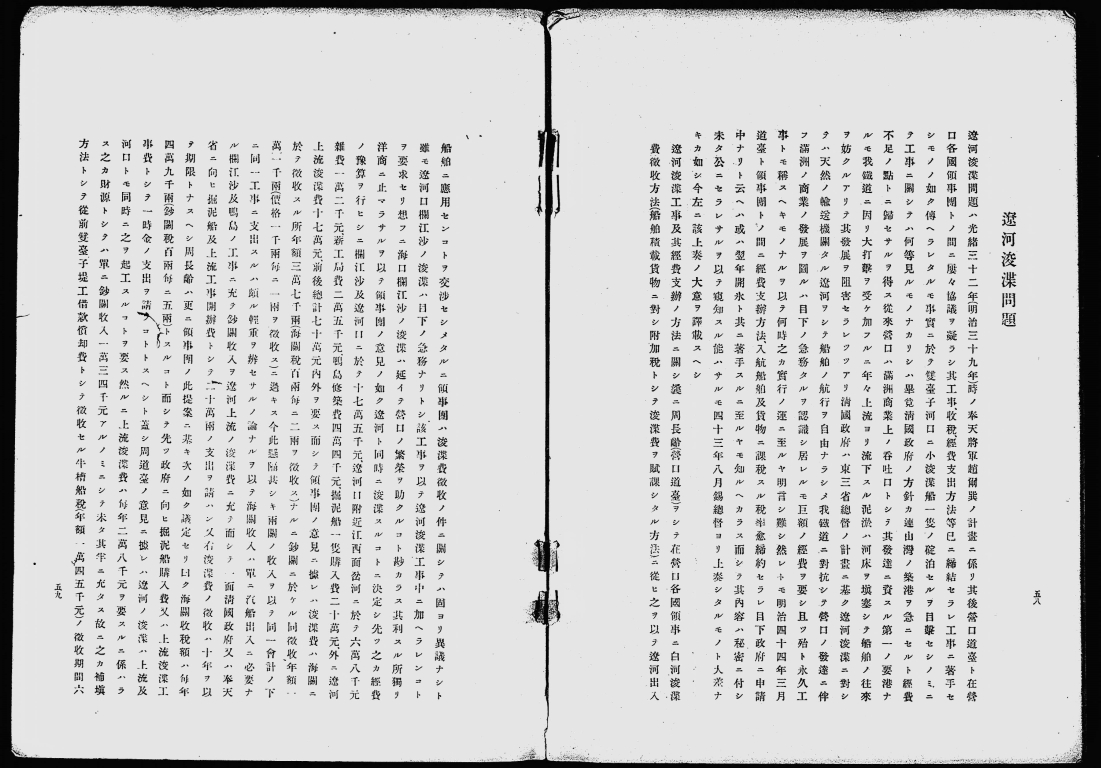 遼河浚渫問題
遼河浚渫問題ハ光緒三十二年(明治三十九年)時ノ奉天將軍趙爾巽ノ計畫ニ係リ其後營口道臺ト在營
口各國領事團トノ間ニ屢々協議ヲ凝ラシ其工事、收稅、經費支出方法等已ニ締結セラレ工事ニ著手セ
シモノヽ如ク傳ヘラレタルモ事實ニ於テ雙臺子河口ニ小浚渫船一隻ノ碇泊セルヲ目擊セシノミニ
テ工事ニ關シテハ何等見ルモノナカリシハ畢竟淸國政府ノ方針カ連山灣ノ築港ヲ急ニセルト經費
不足ノ點トニ歸セサルヲ得ス從來營口ハ滿洲商業上ノ呑吐口トシテ其發達ニ資スル第一ノ要港ナ
ルモ我鐵道ニ因リ大打擊ヲ受ケ加フルニ年々上流ヨリ流下スル泥淤ハ河床ヲ塡塞シテ船舶ノ往來
ヲ妨クルアリテ其發展ヲ阻害セラレツヽアリ淸國政府ハ東三省總督ノ計畫ニ基ク遼河浚渫ニ對シ
テハ天然ノ輸送機關タル遼河ヲシテ船舶ノ航行ヲ自由ナラシメ我鐵道ニ對抗シテ營口ノ發達ニ伴
フ滿洲ノ商業ノ發展ヲ圖ルハ目下ノ急務タルヲ認識シ居レルモ巨額ノ經費ヲ要シ且ツ殆ト永久工
事トモ稱スヘキモノナルヲ以テ何時之カ實行ノ運ニ至ルヤ明言シ難シ然レトモ明治四十四年三月
道臺ト領事團トノ間ニ經費支辦方法、入航船舶及貨物ニ課稅スル稅率愈締約セラレ目下政府ニ申請
中ナリト云ヘハ或ハ翌年開氷ト共ニ著手スルニ至ルヤモ知ルヘカラス而シテ其內容ハ秘密ニ付シ
未タ公ニセラレサルヲ以テ窺知スル能ハサルモ四十三年八月錫總督ヨリ上奏シタルモノト大差ナ
キカ如シ今左ニ該上奏ノ大意ヲ譯載スヘシ
遼河浚渫工事及其經費支辦ノ方法ニ關シ曩ニ周長齡(營口道臺)ヲシテ在營口各國領事ニ白河浚渫
費徵收方法(船舶積載貨物ニ對シ附加稅トシテ浚渫費ヲ賦課シタル方法)ニ從ヒ之ヲ以テ遼河出入
五八
船舶ニ應用センコトヲ交涉セシメタルニ領事團ハ浚渫費徵收ノ件ニ關シテハ固ヨリ異議ナシト
雖モ遼河口欄江沙ノ浚渫ハ目下ノ急務ナリトシ該工事ヲ以テ遼河浚渫工事中ニ加ヘラレンコト
ヲ要求セリ想フニ海口欄江沙ノ浚渫ハ延イテ營口ノ繁榮ヲ助クルコト尠カラス其利スル所獨リ
洋商ニ止マラサルヲ以テ領事團ノ意見ノ如ク遼河ト同時ニ浚渫スルコトニ決定シ先ツ之カ經費
ノ豫算ヲ行ヒシニ欄江沙及遼河口ニ於テ十七萬五千元、遼河口附近江西面岔河ニ於テ六萬八千元
雜費一萬二千元、薪工局費二萬五千元、鴨島修築費四萬四千元、掘泥船一隻購入費二十萬元、外ニ遼河
上流浚渫費十七萬元前後總計七十萬元內外ヲ要ス而シテ領事團ノ意見ニ據レハ浚渫費ハ海關ニ
於テ徵收スル所年額三萬七千兩(海關稅百兩每ニ二兩ヲ徵收ス)ナルニ鈔關ニ於ケル同徵收年額一
萬一千兩(價格一千兩每ニ一兩ヲ徵收ス)ニ過キス今此懸隔甚シキ兩關ノ收入ヲ以テ同一會計ノ下
ニ同一工事ニ支出スルハ頗ル輕重ヲ辨セサルノ論ナルヲ以テ海關收入ハ單ニ汽船出入ニ必要ナ
ル欄江沙及鴨島ノ工事ニ充テ鈔關收入ヲ遼河上流ノ浚渫費ニ充テ而シテ一面淸國政府又ハ奉天
省ニ向ヒ掘泥船及上流工事開辦費トシテ二十萬兩ノ支出ヲ請ハン又右浚渫費ノ徵收ハ十年ヲ以
テ期限トナスヘシ周長齡ハ更ニ領事團ノ此提案ニ基キ次ノ如ク議定セリ曰ク海關收稅額ハ每年
四萬九千兩(鈔關稅百兩每ニ五兩)トスルコト而シテ先ツ政府ニ向ヒ掘泥船購入費又ハ上流浚渫工
事費トシテ一時金ノ支出ヲ請フコトトスヘシト蓋シ周道臺ノ意見ニ據レハ遼河ノ浚渫ハ上流及
河口トモ同時ニ之ヲ起工スルコトヲ要ス然ルニ上流浚渫費ハ每年二萬八千元ヲ要スルニ係ハラ
ス之カ財源トシテハ單ニ鈔關收入一萬三四千元アルノミニシテ未タ其半ニ充タス故ニ之カ補塡
方法トシテ從前雙臺子堤工借款償却費トシテ徵收セル牛槽船稅(年額一萬四五千元)ノ徵收期間六
五九